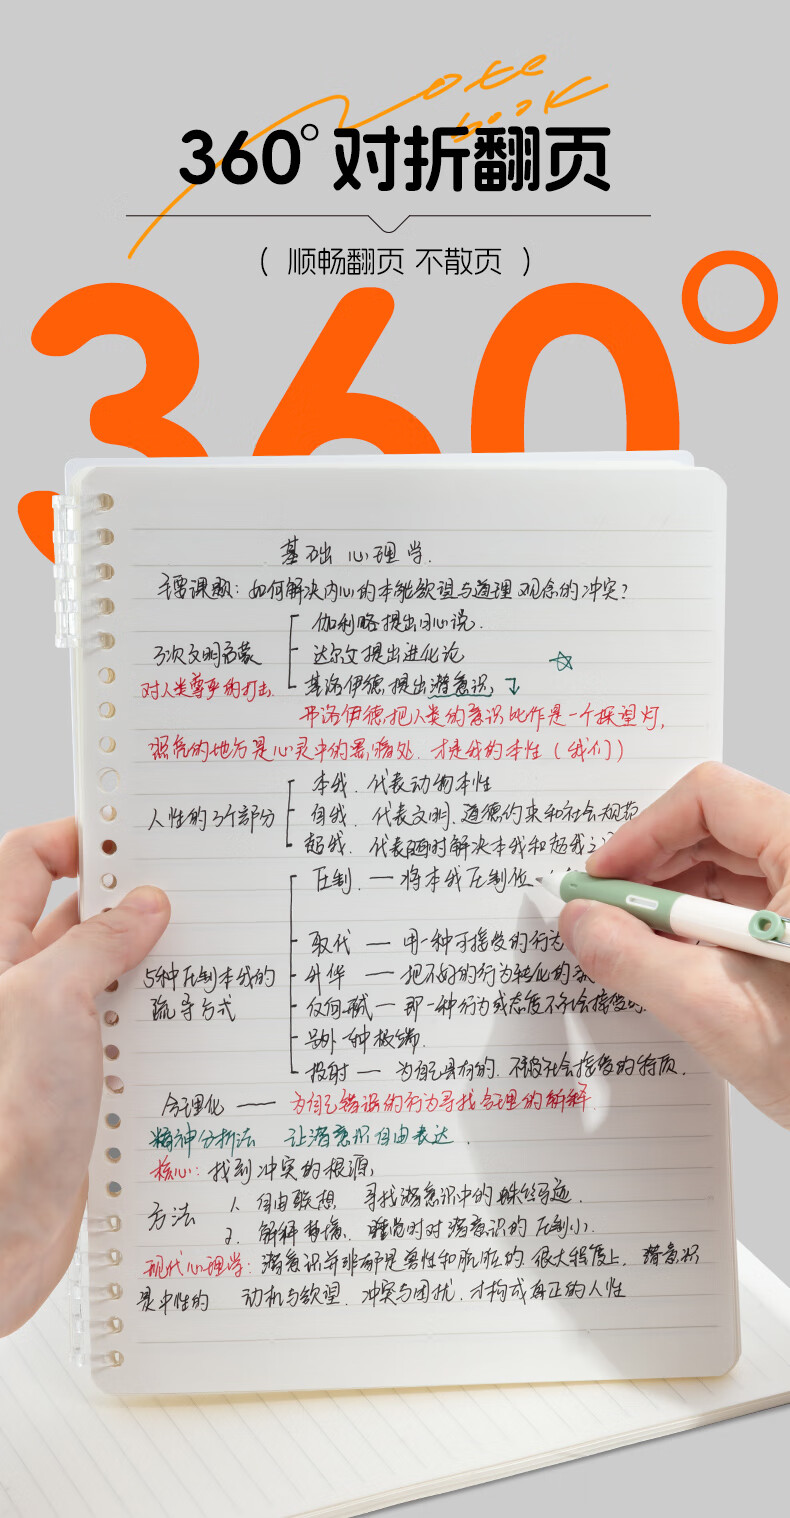 note
book
360° 对折翻页
( 顺畅翻页 不散页 )
360°
基础心理学.
主要课题: 如何解决内心的本能欲望与道理观念的冲突?
伽利略提出日心说.
3次文明启蒙
达尔文提出进化论
对人类尊严的打击
弗洛伊德,提出潜意识,
弗洛伊德,把人类的意识比作是一个探望灯,
照亮的地方是心灵中的 才是我的本性(我们)
本我. 代表动物本性
人性的3个部分
自我. 代表文明.道德约束和社会规范
超我. 代表随时解决本我和超我之
压制. — 将本我压制位
取代 — 用一种可接受的行为
5种压制本我的
升华 — 把不好的行为转化的
疏导方式
反向形式 — 那一种行为或态度不许会接受的
另外一种极端.
投射 — 为自己具有的.不被社会接受的特质.
合理化 — 为自己错误的行为寻找合理的解释.
精神分析法 让潜意识自由表达.
核心: 找到冲突的根源,
方法 1. 自由联想 寻找潜意识中的蛛丝马迹.
2. 解释梦境. 睡觉时对潜意识的压制小.
现代心理学: 潜意识并非都是兽性和肮脏的.很大程度上. 潜意识
是中性的 动机与欲望. 冲突与困扰.才构成真正的人性